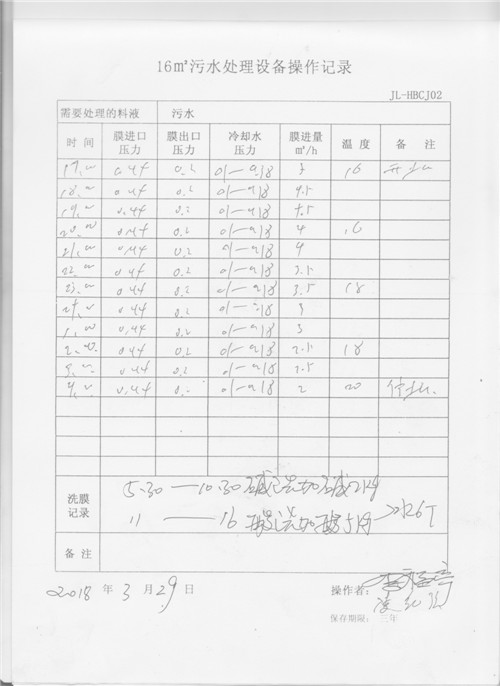 16m³污水处理设备操作记录
JL-HBCJ02
需要处理的料液 污水
时间 膜进口压力 膜出口压力 冷却水压力 膜进量m³/h 温度 备注
17.00 0.44 0.2 01—0.18 5 16
18.00 0.44 0.2 01—0.18 4.5
19.00 0.44 0.2 01—0.18 4.5
20.00 0.44 0.2 01—0.18 4 16
21.00 0.44 0.2 01—0.18 4
22.00 0.44 0.2 01—0.18 3.5
23.00 0.44 0.2 01—0.18 3.5 18
24.00 0.44 0.2 01—0.18 3
1.00 0.44 0.2 01—0.18 3
2.00 0.44 0.2 01—0.18 2.5 18
3.00 0.44 0.2 01—0.18 2.5
4.00 0.44 0.2 01—0.18 2 20
洗膜记录
5.30—10.30碱洗加碱2kg
11——16酸洗加酸5kg >水6T
备注
2018年3月29日 操作者:
保存期限: 三年